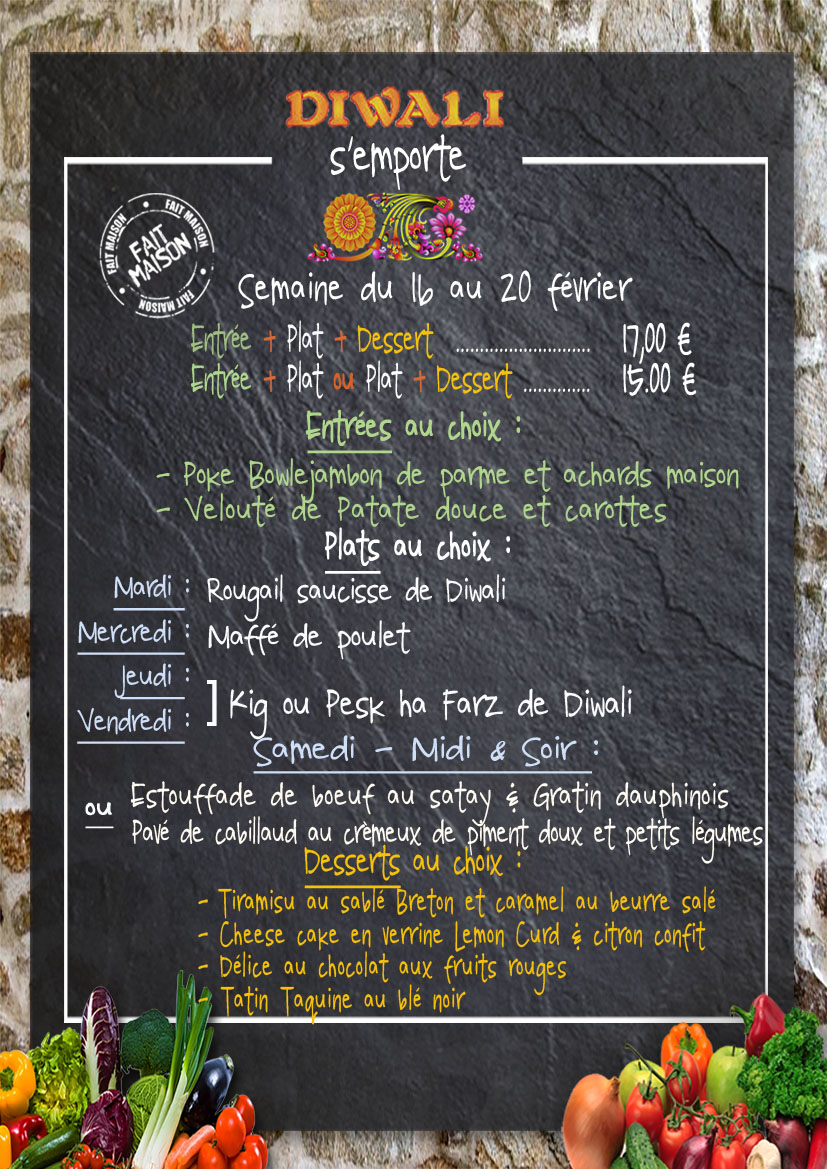 DIWALI
s'emporte
FAIT MAISON
FAIT MAISON
FAIT MAISON
FAIT
MAISON
Semaine du 16 au 20 février
Entrée + Plat + Dessert ............................ 17,00 €
Entrée + Plat ou Plat + Dessert .............. 15.00 €
Entrées au choix :
- Poke Bowlejambon de parme et achards maison
- Velouté de Patate douce et carottes
Plats au choix :
Mardi : Rougail saucisse de Diwali
Mercredi : Maffé de poulet
Jeudi :
Vendredi : ] Kig ou Pesk ha Farz de Diwali
Samedi - Midi & Soir :
Estouffade de boeuf au satay & Gratin dauphinois
ou
Pavé de cabillaud au crèmeux de piment doux et petits légumes
Desserts au choix :
- Tiramisu au sablé Breton et caramel au beurre salé
- Cheese cake en verrine Lemon Curd & citron confit
- Délice au chocolat aux fruits rouges
- Tatin Taquine au blé noir